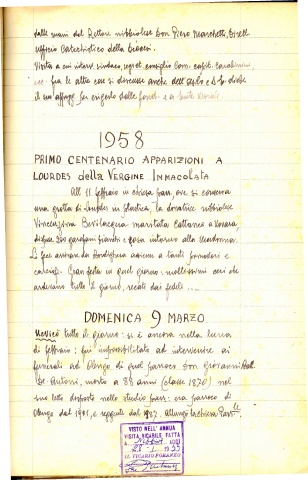 dalle mani del Rettore nibbiolese Don Piero Marchetti, Dirett.
ufficio Catechistico della Diocesi.
Visita a cui interv. sindaco, segret. consiglio Com.
fra le altre cose si discusse anche dell'asilo e
il suo
1958
PRIMO CENTENARIO APPARIZIONI A
LOURDES della VERGINE IMMACOLATA
All' 11 febbraio in chiesa parr. ove si conserva
una grotta di Lourdes in plastica, la donatrice nibbiolese
Vincenzina Bevilacqua maritata Cattaneo a Novara,
dispose 200 garofani bianchi e rosa intorno alla Madonna.
Li fece arrivare da Bordighera assieme a tanti pomodori e
carciofi. Gran festa in quel giorno: moltissimi ceri che
arderono tutto il giorno, recati dai fedeli ....
DOMENICA 9 MARZO
Nevicò tutto il giorno: si è ancora nella luna
di febbraio: fui impossibilitato ad intervenire ai
funerali ad Olengo di quel parroco Don Giovanni Batt.
De Antoni, morto a 88 anni (classe 1870) nel
suo letto disposto nello studio parr.: era parroco di
Olengo dal 1901, e reggente dal 1937. Allungò la chiesa Parr.le
VISTO NELL' ANNUA
VISITA VICARIALE FATTA
ADDI
IL VICARIO FORANEO